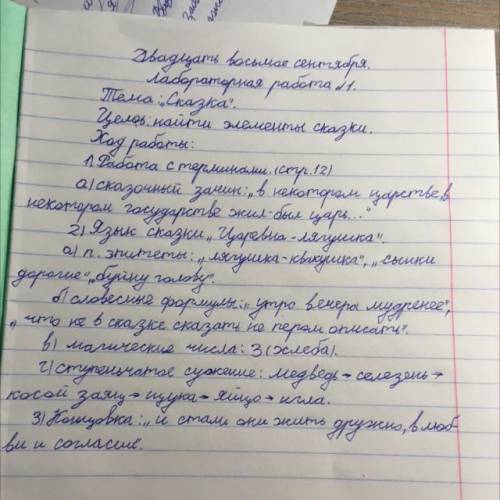 Двадцать восьмое сентября.
Лабораторная работа №1.
Тема: „Сказка".
Цель: найти элементы сказки.
Ход работы:
1. Работа с терминами. (стр. 12)
а) сказочный зачин: „в некотором царстве, в
некотором государстве жил-был царь..."
2) Язык сказки „Царевна-лягушка".
а) п. эпитеты: „лягушка-квакушка", „сынки
дорогие", „буйну голову".
б) словесные формулы: „утро вечера мудренее",
„что не в сказке сказать не пером описать".
в) магические числа: 3 (хлеба).
г) ступенчатое сужение: медведь → селезень →
косой заяц → щука → яйцо → игла.
3) Концовка: „и стали они жить дружно, в люб-
ви и согласие.